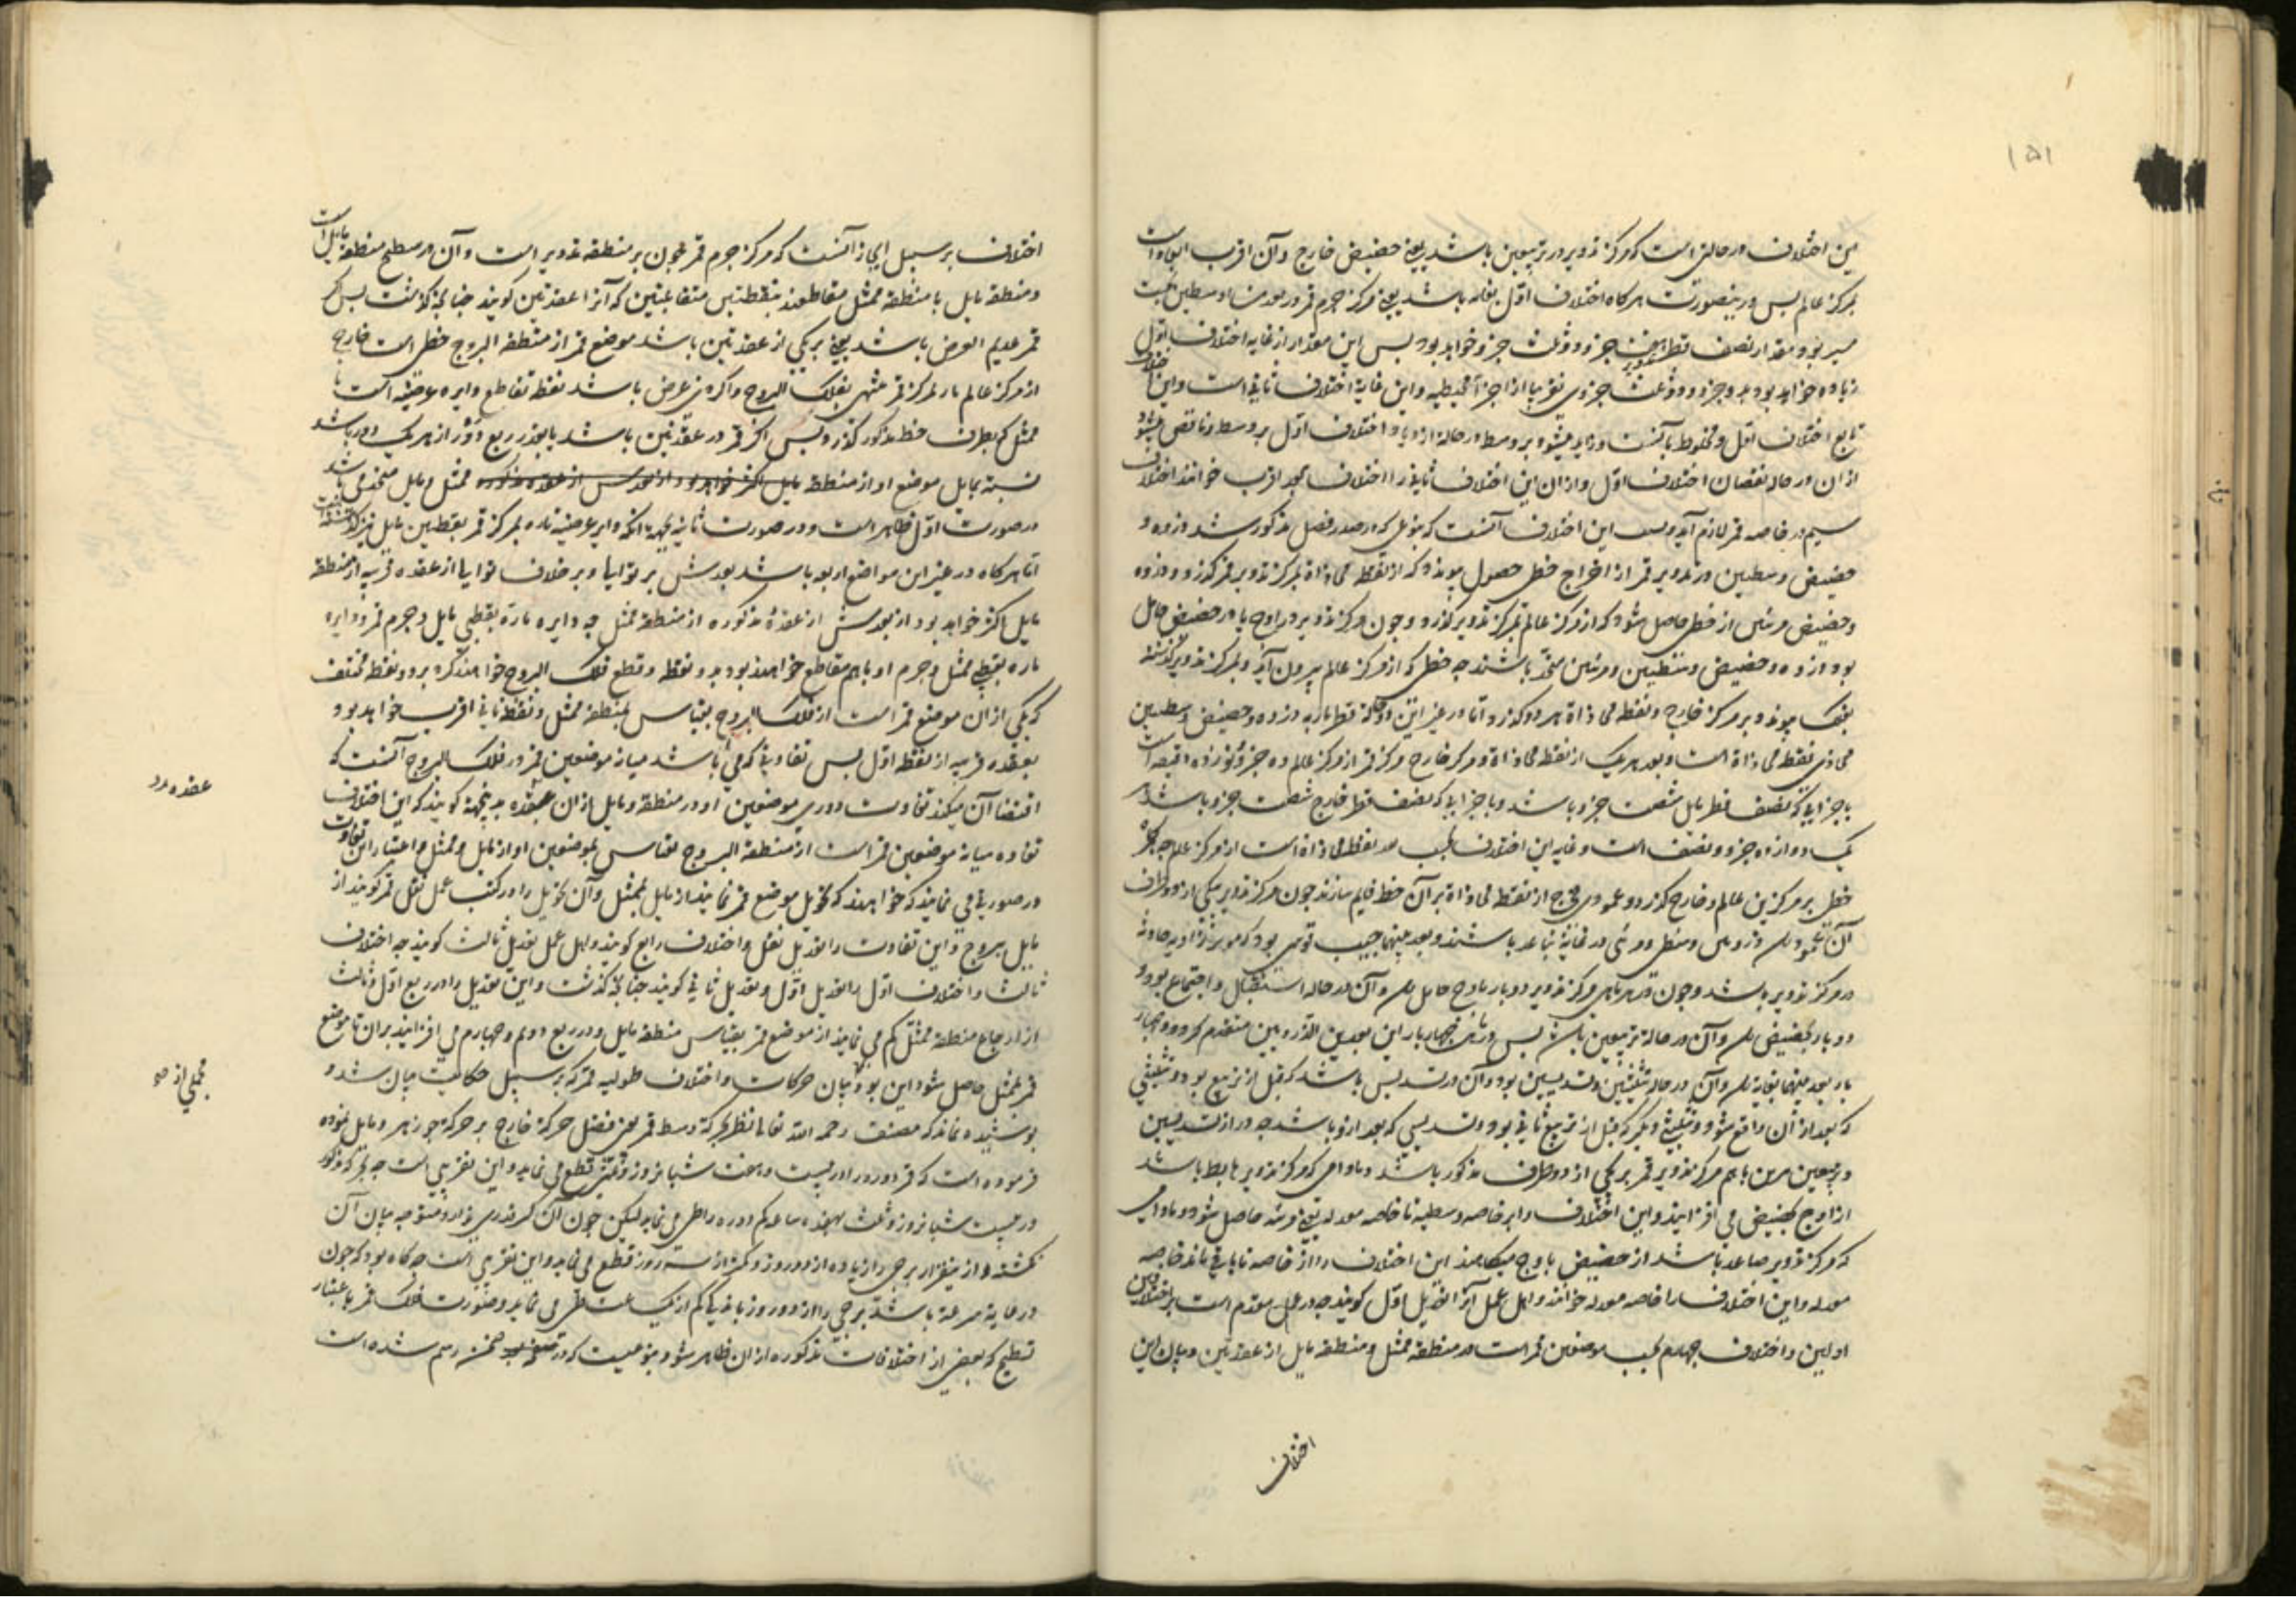 ۱۵۱
این اختلاف در حالتی است که مرکز تدویر در تربیعین باشد یعنی حضیض خارج و آن اقرب ابعاد است
بمرکز عالم پس درینصورت هرکاه اختلاف اول بغایه باشد یعنی مرکز جرم قمر در بعدین اوسطین بحسب
مسیر بود مقدار نصف قطر جزو و دو ثلث جزو خواهد بود پس این مقدار از غایه اختلاف اول
زیاده خواهد بود بدو جزو و دو ثلث جزوی تقریبا از اجزاء محیطیه و این غایة اختلاف ثانی است و این اختلاف
تابع اختلاف اول و مخلوط بآنست و زاید میشود بر وسط در حالة ازدیاد اختلاف اول بر وسط و ناقص میشود
ازان در حالة نقصان اختلاف اول و ازان این اختلاف ثانی را اختلاف بعد اقرب خوانند اختلاف
سیم در خاصه قمر لازم آید و سبب این اختلاف آنست که بنوعی که در صدر فصل مذکور شد ذروه و
حضیض وسطیین در تدویر قمر از اخراج خطی حصول پیوندد که از نقطه محاذاة بمرکز تدویر قمر کذرد و ذروه
و حضیض مرئیین از خطی حاصل شود که از مرکز عالم بمرکز تدویر کذرد و چون مرکز تدویر در اوج یا در حضیض حامل
بود ذروه و حضیض وسطیین و مرئیین متحد باشند چه خطی که از مرکز عالم بیرون آید و بمرکز تدویر کذشته
بفلک پیوندد بر مرکز خارج و نقطه محاذاة هر دو کذرد و اما در غیر این دو حالة قطر ماربه ذروه و حضیض وسطیین
محاذی نقطه محاذاة است و بعد هر یک از نقطه محاذاة و مرکز خارج مرکز قمر از مرکز عالم ده جزو و نوزده دقیقه است
باجزایی که نصف قطر مایل شصت جزو باشد و باجزایی که نصف قطر خارج شصت جزو باشد
یک دوازده جزو و نصف است و غایه این اختلاف بسبب بعد نقطه محاذاة است از مرکز عالم چه هرکاه
خطی بر مرکزین عالم و خارج کذرد و عمودی مخرج از نقطه محاذاة بر آن خط قایم سازند چون مرکز تدویر بیکی از دو طرف
آن عمود رسد ذروتین وسطی و مرئی در غایة تباعد باشند و بعد بینهما بحسب قوسی بود که موتر زاویه حادثه
در مرکز تدویر باشد و چون در هر ماهی مرکز تدویر دو بار باوج حامل رسد و آن در حالة استقبال و اجتماع بود و
دو بار بحضیض رسد و آن در حالة تربیعین باشد پس در ماهی چهار بار این بعد بین الذروتین منعدم کردد و چهار
بار بعد بینهما بغایه رسد و آن در حالة تثلیثین و تسدیسین بود و آن در تسدیس باشد که قبل از تربیع بود و تثلیثی
که بعد از آن واقع شود و تثلیثی دیگر که قبل از تربیع ثانی بود و تسدیسی که بعد ازو باشد چه در از تسدیسین
و تربیعین مرکز تدویر قمر بر یکی از دو طرف مذکور باشد و مادامی که مرکز تدویر هابط باشد
از اوج بحضیض می افزایند و این اختلاف را بر خاصه وسطیه تا خاصه معدله یعنی مرئیه حاصل شود و مادامی
که مرکز تدویر صاعد باشد از حضیض باوج میکاهند این اختلاف را از خاصه تا باقی ماند خاصه
معدله و این اختلاف را خاصه معدله خوانند و اهل عمل آنرا تعدیل اول کویند چه در عمل مقدم است بر اختلافین
اولین و اختلاف چهارم بحسب موضعین قمر است در منطقه ممثل و منطقه مایل از عقدتین و بیان این
اختلاف
اختلاف بر سبیل ایجاز آنست که مرکز جرم قمر چون بر منطقه تدویر است و آن در سطح منطقه مایل است
و منطقه مایل با منطقه ممثل متقاطعند بنقطتین متقابلتین که آنرا عقدتین کویند چنانچه کذشت پس اکر
قمر عدیم العرض باشد یعنی بر یکی از عقدتین باشد موضع قمر از منطقة البروج خطی است خارج
از مرکز عالم مار بمرکز قمر منتهی بفلک البروج و اکر ذی عرض باشد نقطه تقاطع دایره عرضیه است با
ممثل که بطرف خط مذکور کذرد پس اکر قمر در عقدتین باشد یا بقدر ربع دور از هر یک دور باشد
نسبة بمایل موضع او از منطقه مایل ممثل و مایل متحد می باشد
در صورت اول ظاهر است و در صورت ثانیه بجهة آنکه دایره عرضیه ماره بمرکز قمر بقطبین مایل نیز کذشته است
اما هرکاه در غیر این مواضع اربعه باشد بعدش بر توالی یا بر خلاف توالی از عقده قریبه از منطقة
مایل اکثر خواهد بود از بعدش از عقدۀ مذکوره از منطقه ممثل چه دایره ماره بقطبی مایل و جرم قمر و دایره
ماره بقطبی ممثل و جرم او باهم متقاطع خواهند بود بدو نقطه و قطع فلک البروج خواهند کرد بدو نقطه مختلف
که یکی ازان موضع قمر است از فلک البروج بقیاس بمنطقه ممثل و نقطه ثانی اقرب خواهد بود
بعقده قریبه از نقطه اول پس تفاوتی که می باشد میانه موضعین قمر در فلک البروج آنست که
اقتضا آن میکند تفاوت دوری موضعین او در منطقه مایل ازان عقده بدینجهة کویند که این اختلاف
تفاوت میانه موضعین قمر است از منطقة البروج بقیاس بموضعین او از مایل و ممثل و اعتبار این تفاوت
در صورتی می نمایند که خواهند که تحویل موضع قمر نمایند از مایل بممثل و آن تحویل را در کتب عمل نقل قمر کویند از
مایل ببروج و این تفاوت را تعدیل نقل و اختلاف رابع کویند و اهل عمل تعدیل ثالث کویند چه اختلاف
ثالث و اختلاف اول را تعدیل اول و تعدیل ثانی کویند چنانچه کذشت و این تعدیل را در ربع اول و ثالث
از ارجاع منطقه ممثل کم می نمایند از موضع قمر بقیاس منطقه مایل و در ربع دوم و چهارم می افزایند بران تا موضع
قمر بممثل حاصل شود این بود بیان حرکات و اختلاف طولیه قمر که بر سبیل حکایت بیان شد و
پوشیده نماند که مصنف رحمه الله تعالی نظر بحرکة وسط قمر یعنی فضل حرکة خارج بر حرکة جوزهر و مایل نموده
فرموده است که قمر دور در بیست و هفت شبانروز و ثلثی قطع می نماید و این تقریبی است چه قمر کره مذکور
در بیست شبانروز و ثلث ساعه کم دوره را طی می نماید لیکن چون آن کسر قدری ندارد متوجه بیان آن
نکشته و از ینقرار برجی را زیاده از دو روز و کمتر از سه روز قطع می نماید و این تقریبی است چه کاه بود که چون
در غایة سرعة باشد برجی را از دو روز باندکی کم از یک ساعت طی می نماید و صورت فلک قمر باعتبار
تسطیح که بعضی از اختلافات مذکوره ازان ظاهر شود بنوعیست که در ضمن رسم شده است
عقده
مجملی از